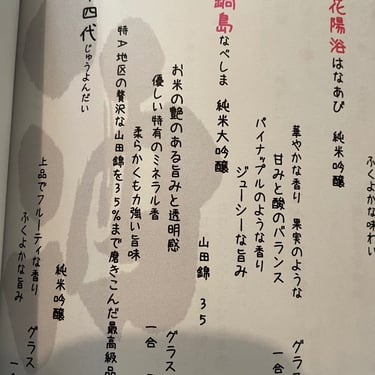 ふくよかな味わい
花陽浴 はなあび 純米吟醸
華やかな香り 果実のような
甘みと酸のバランス
グラス
一合
パイナップルのような香り
ジューシーな旨み
鍋島 なべしま 純米大吟醸
山田錦 35
お米の艶のある旨みと透明感
グラス
優しい特有のミネラル香
一合
柔らかくも力強い旨味
特A地区の贅沢な山田錦を35%まで磨きこんだ最高級品
十四代 じゅうよんだい
純米吟醸
上品でフルーティな香り
グラス
ふくよかな旨み
一